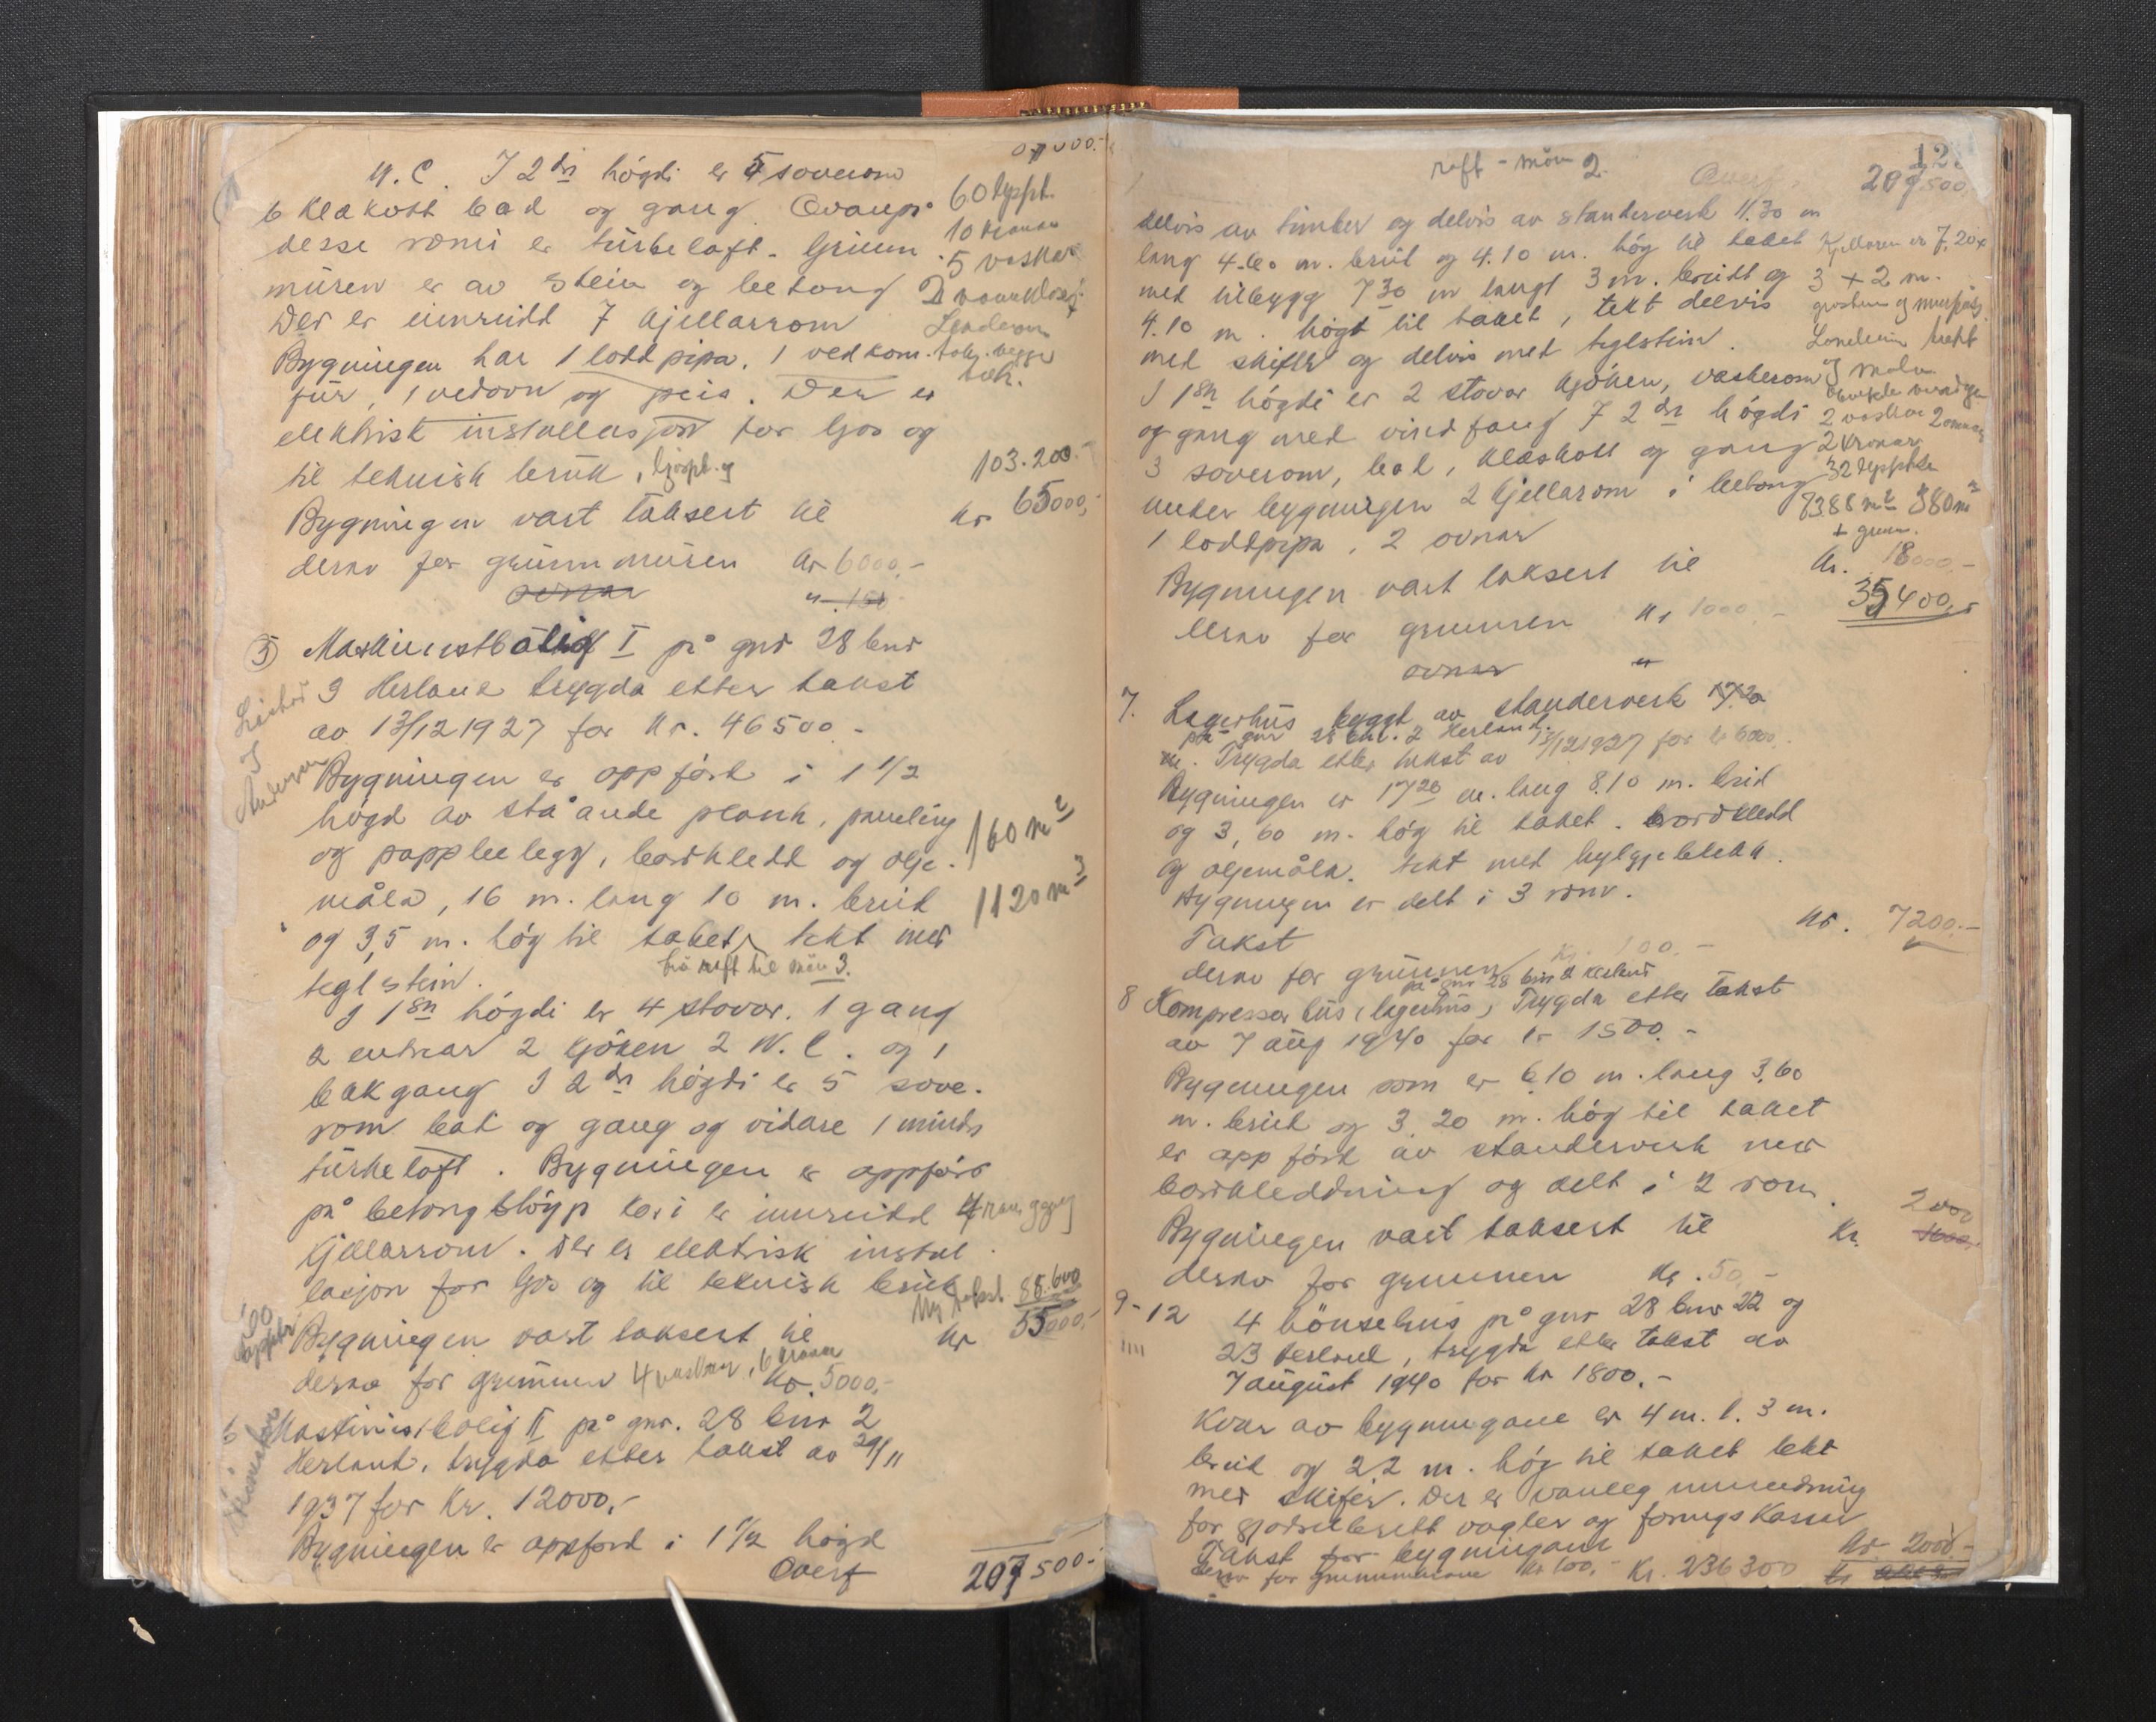 W.C. I 2dr högdi er 5 soverom
6 kleskott bad og gang. Ovanpå
desse romi er türkeloft. Grunn
müren er av stein og betong
Der er innreidd 7 kjellarrom
Bygningen har 1 loddpipa. 1 vedkom-
für, 1 vedovn og peis. Der er
elektrisk installasjon for ljos og
til teknisk brük,
Bygningen vart taksert til kr 65000,-
103.200.-
derav for grunnmüren kr 6000.-
ovnar " 150
60 lyspkt.
10 kranar
5 vaskar
2
5) Maskinistbolig I på gnr 28 bnr
3 Herland trygda etter takst
av 13/12 1927 for kr. 46500.-
Bygningen er oppförd i 1 1/2
högd av stå ande plank, paneling
og papp belegg, bordkledd og olje-
måla, 16 m. lang 10 m. breid
160 m2
1120 m3
og 3,5 m. hög til taket, tekt med
teglstein.
frå raft til mön 3.
I 1ste högdi er 4 stovor. 1 gang
2 entrear 2 kjöken 2 W.C. og 1
bakgang I 2dr högdi er 5 sove-
rom bad og gang og vidare 1 mindre
türkeloft. Bygningen er oppförd
på betong stöyp kor i er innreidd 4
kjellarrom. Der er elektrisk instal-
lasjon for ljos og til teknisk brük
Ny takst 85.600
Bygningen vart taksert til kr 55000,-
derav for grunnen kr. 5000,-
4 vaskar, 6 kranar
6 Maskinistbolig II på gnr. 28 bnr 2
Herland, trygda etter takst av 29/11
1937 for kr. 12000,-
Bygningen er oppförd i 1 1/2 högd
Overf 207500.-
raft - mön 2.
12
207500.
delvis av timber og delvis av standerverk 11.30 m
lang 4.60 m. breid og 4.10 m. hög til taket
med tilbygg 7 30 m langt 3 m. breidt og
4.10 m. högt til taket, tekt delvis
med skifer og delvis med teglstein.
Kjellaren er 7.20 x
3 + 2 m.
I 1ste högdi er 2 stovor kjöken, vaskerom
og gang med vindfang I 2dr högdi
3 soverom, bad, kleskott og gang
under bygningen 2 kjellarom i betong
1 loddpipa, 2 ovnar
2 vaskar 2 ovnar
2 kranar
32 lyspkt
Bygningen vart taksert til kr. 18000.-
35400,-
derav for grunnen kr 1000.-
ovnar "
7. Lagerhüs bygt av standerverk 17.20
på gnr 28 bnr. 2 Herland.
m. Trygda etter takst av 13/12 1927 for kr 6000.
Bygningen er 17 20 m. lang 8.10 m. breid
og 3,60 m. hög til taket. bordkledd
og oljemåla. tekt med bylgjeblekk.
Bygningen er delt i 3 rom.
Takst kr. 7200.-
derav for grunnen kr. 100.-
på gnr 28 bnr 2 Herland
8 Kompressor hüs (lagerhüs) Trygda etter takst
av 7 aug 1940 for kr 1500.-
Bygningen som er 6.10 m. lang 3.60
m. breid og 3.20 m. hög til taket
er oppförd av standerverk med
bordkleddning og delt i 2 rom.
2000
Bygningen vart taksert til kr. 1600.-
derav for grunnen kr. 50.-
9-12 4 hönsehus på gnr 28 bnr 22 og
23 Herland, trygda etter takst av
7 august 1940 for kr 1800.-
Kvar av bygningane er 4 m. l. 3 m.
breid og 2.2 m. hög til taket tekt
med skifer. Der er vanleg innreidning
for gjödselbrett vagler og foringskassar
Takst for bygningane kr 2000.-
derav for grunnmurane kr 100.- kr. 236300